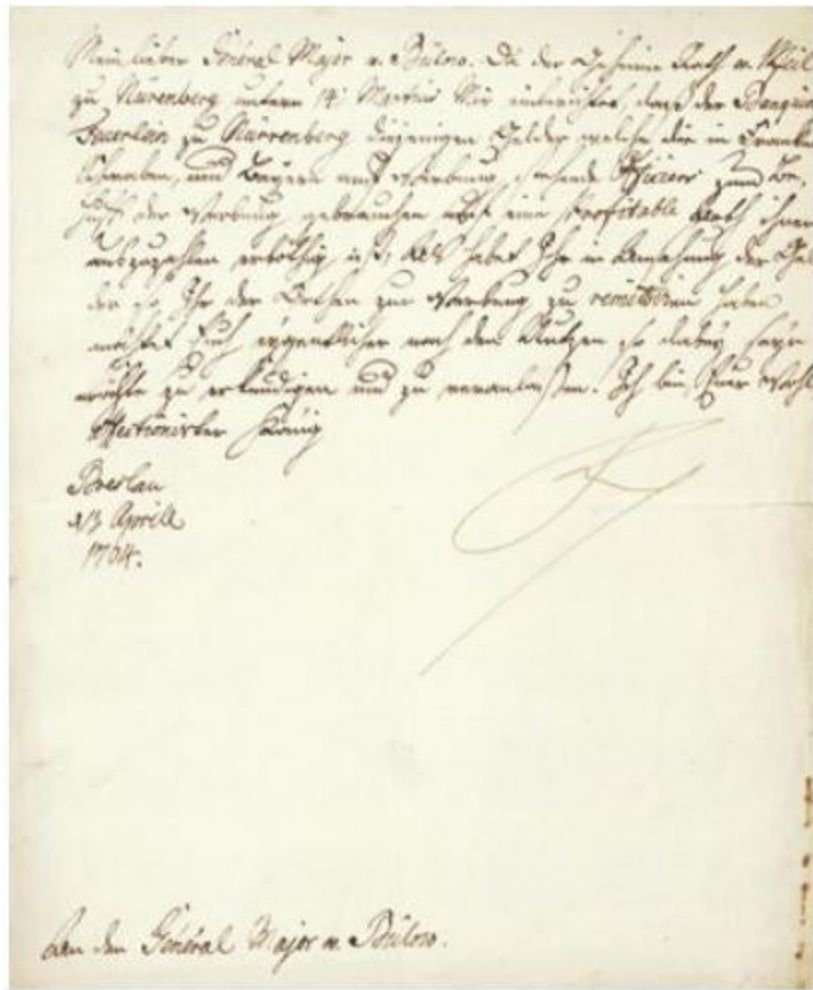 Mein lieber Général Major v. Bülow. Da der Geheime Rath v.
zu Nürenberg unterm 14. Martius Mir einberichtet, dass der Banquier
Feuerlein zu Nürrenberg diejenigen Gelder welche die in Francken
Schwaben, und Bayern auf Werbung stehende Officiers zum Be,
huff der Werbung gebrauchen auf eine Profitable Arth ihnen
auszuzahlen erböthig ist; Als habet Ihr in Ansehung der Gel
der so Ihr der Werbung zu remittiren haben
möchtet Euch eigentlicher nach den Nutzen so dabey seyn
möchte zu erkundigen und zu veranlassen. Ich bin Euer Wohl
affectionirter König
Breslau
Aprill
An den Général Major v. Bülow.